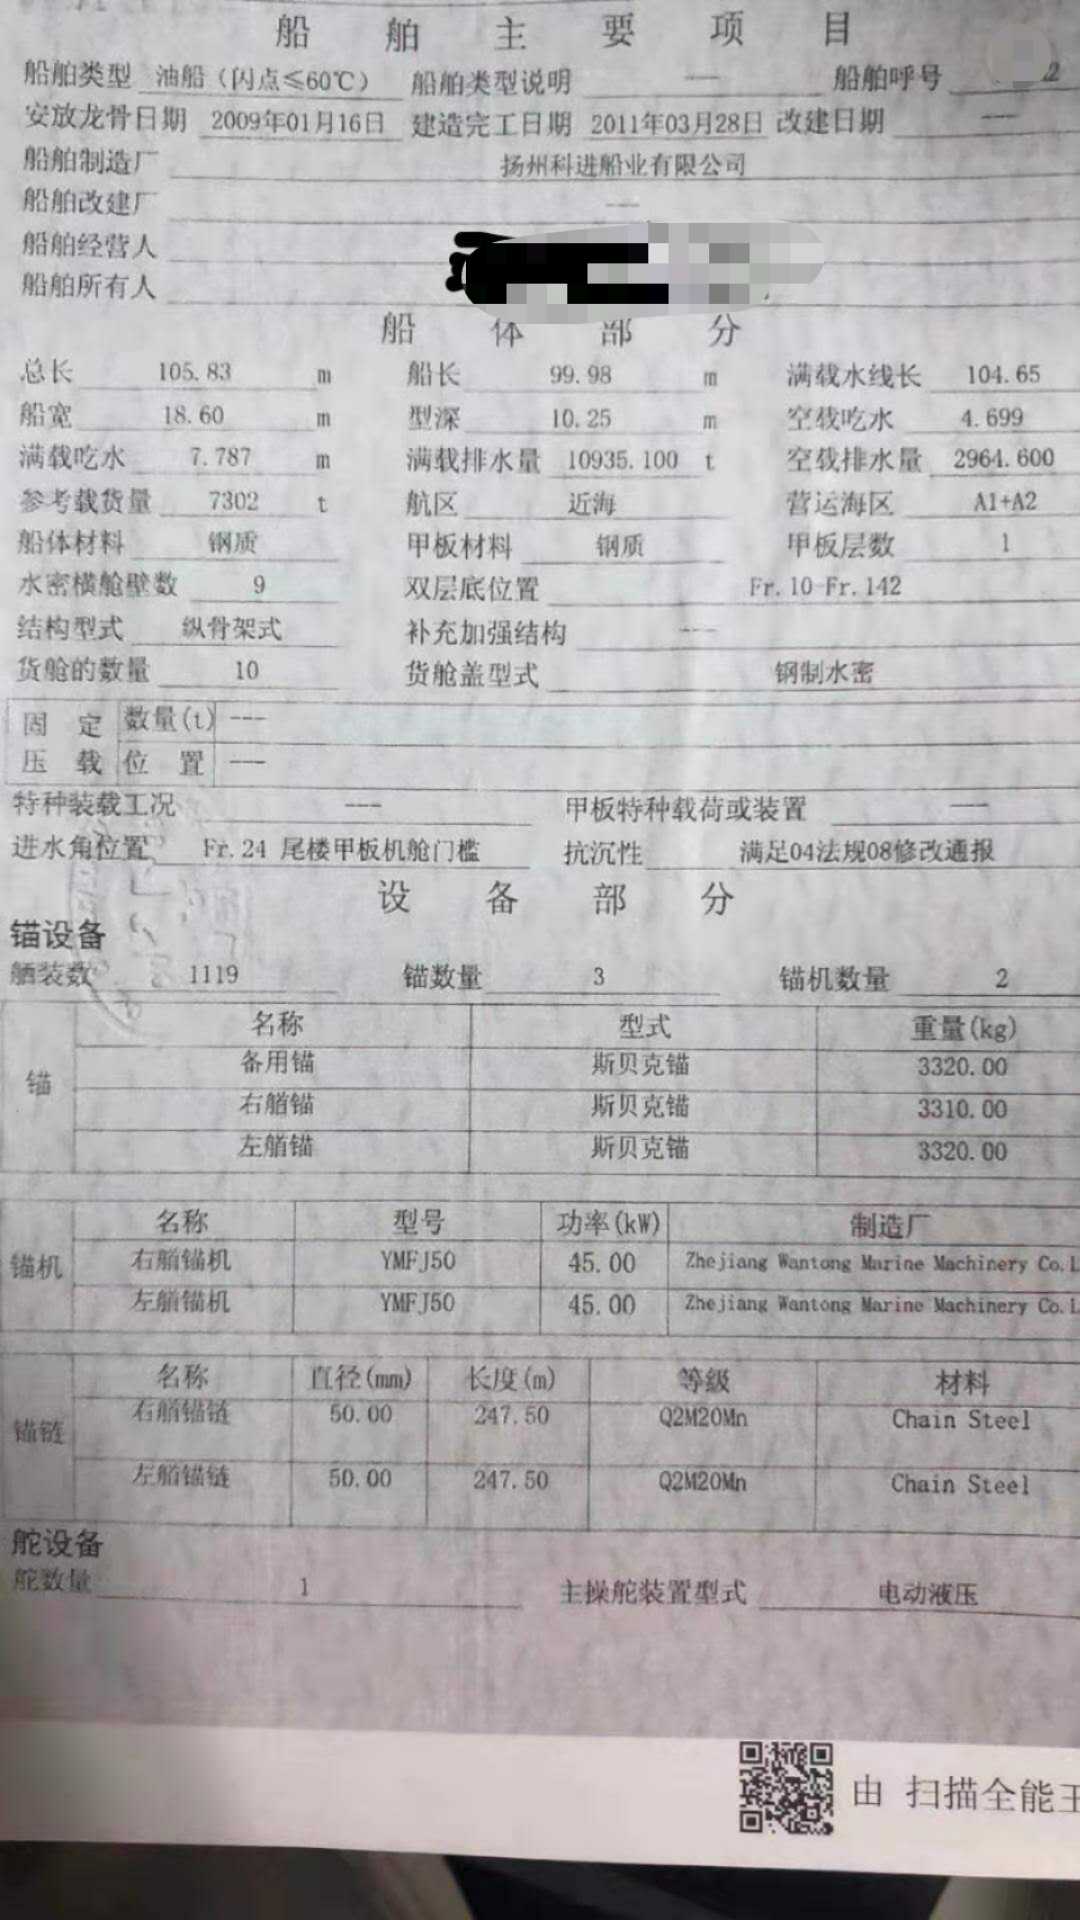 船舶主要项目
船舶类型 油船（闪点≤60℃） 船舶类型说明 --- 船舶呼号 2
安放龙骨日期 2009年01月16日 建造完工日期 2011年03月28日 改建日期 ---
船舶制造厂 扬州科进船业有限公司
船舶改建厂 ---
船舶经营人
船舶所有人
船体部分
总长 105.83 m 船长 99.98 m 满载水线长 104.65
船宽 18.60 m 型深 10.25 m 空载吃水 4.699
满载吃水 7.787 m 满载排水量 10935.100 t 空载排水量 2964.600
参考载货量 7302 t 航区 近海 营运海区 A1+A2
船体材料 钢质 甲板材料 钢质 甲板层数 1
水密横舱壁数 9 双层底位置 Fr.10-Fr.142
结构型式 纵骨架式 补充加强结构 ---
货舱的数量 10 货舱盖型式 钢制水密
固定 数量(t) ---
压载 位置 ---
特种装载工况 --- 甲板特种载荷或装置 ---
进水角位置 Fr.24 尾楼甲板机舱门槛 抗沉性 满足04法规08修改通报
设备部分
锚设备
舾装数 1119 锚数量 3 锚机数量 2
名称 型式 重量(kg)
锚 备用锚 斯贝克锚 3320.00
右艏锚 斯贝克锚 3310.00
左艏锚 斯贝克锚 3320.00
名称 型号 功率(kW) 制造厂
锚机 右艏锚机 YMFJ50 45.00 Zhejiang Wantong Marine Machinery Co.L
左艏锚机 YMFJ50 45.00 Zhejiang Wantong Marine Machinery Co.L
名称 直径(mm) 长度(m) 等级 材料
锚链 右艏锚链 50.00 247.50 Q2M20Mn Chain Steel
左艏锚链 50.00 247.50 Q2M20Mn Chain Steel
舵设备
舵数量 1 主操舵装置型式 电动液压
由 扫描全能王